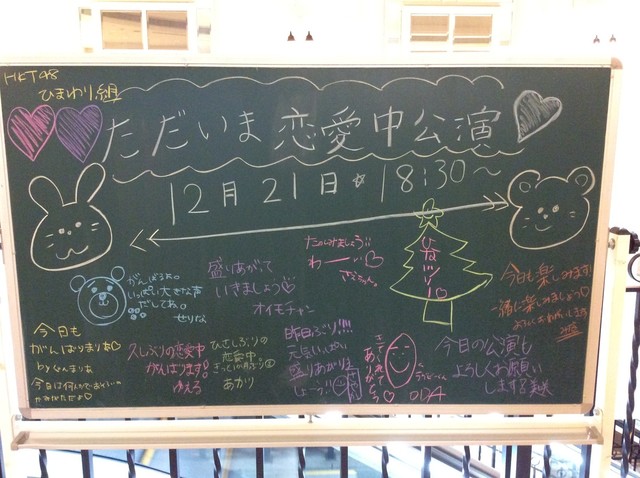 HKT48
ひまわり組
ただいま 恋愛中公演
12月 21日 18:30〜
たのしみましょう!!
わーい♡
ひなツリー
がんばるぞ。
いっぱい大きな声
だしてね。
せりな
盛りあがって
いきましょう♡
オイモチャン
今日も楽しみます!
一緒に楽しみましょう♡
今日も
がんばりまりあ♡
by なんまりあ
久しぶりの恋愛中
がんばります!
ゆえる
ひさしぶりの
恋愛中
あかり
昨日ぶり!!!
元気いっぱい
盛りあがりま
しょーう!!
きてくれて
ありがとう♡
今日の公演も
よろしくお願い
します